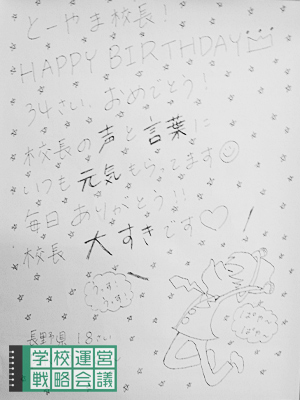 とーやま校長!
HAPPY BIRTHDAY
34さい、おめでとう!
校長の声と言葉に
いつも元気もらってます
毎日ありがとう!!
校長 大すきです♡!
うぇい
うぇい
ぱた
ぱた
長野県 18さい
学校運営
戦略会議